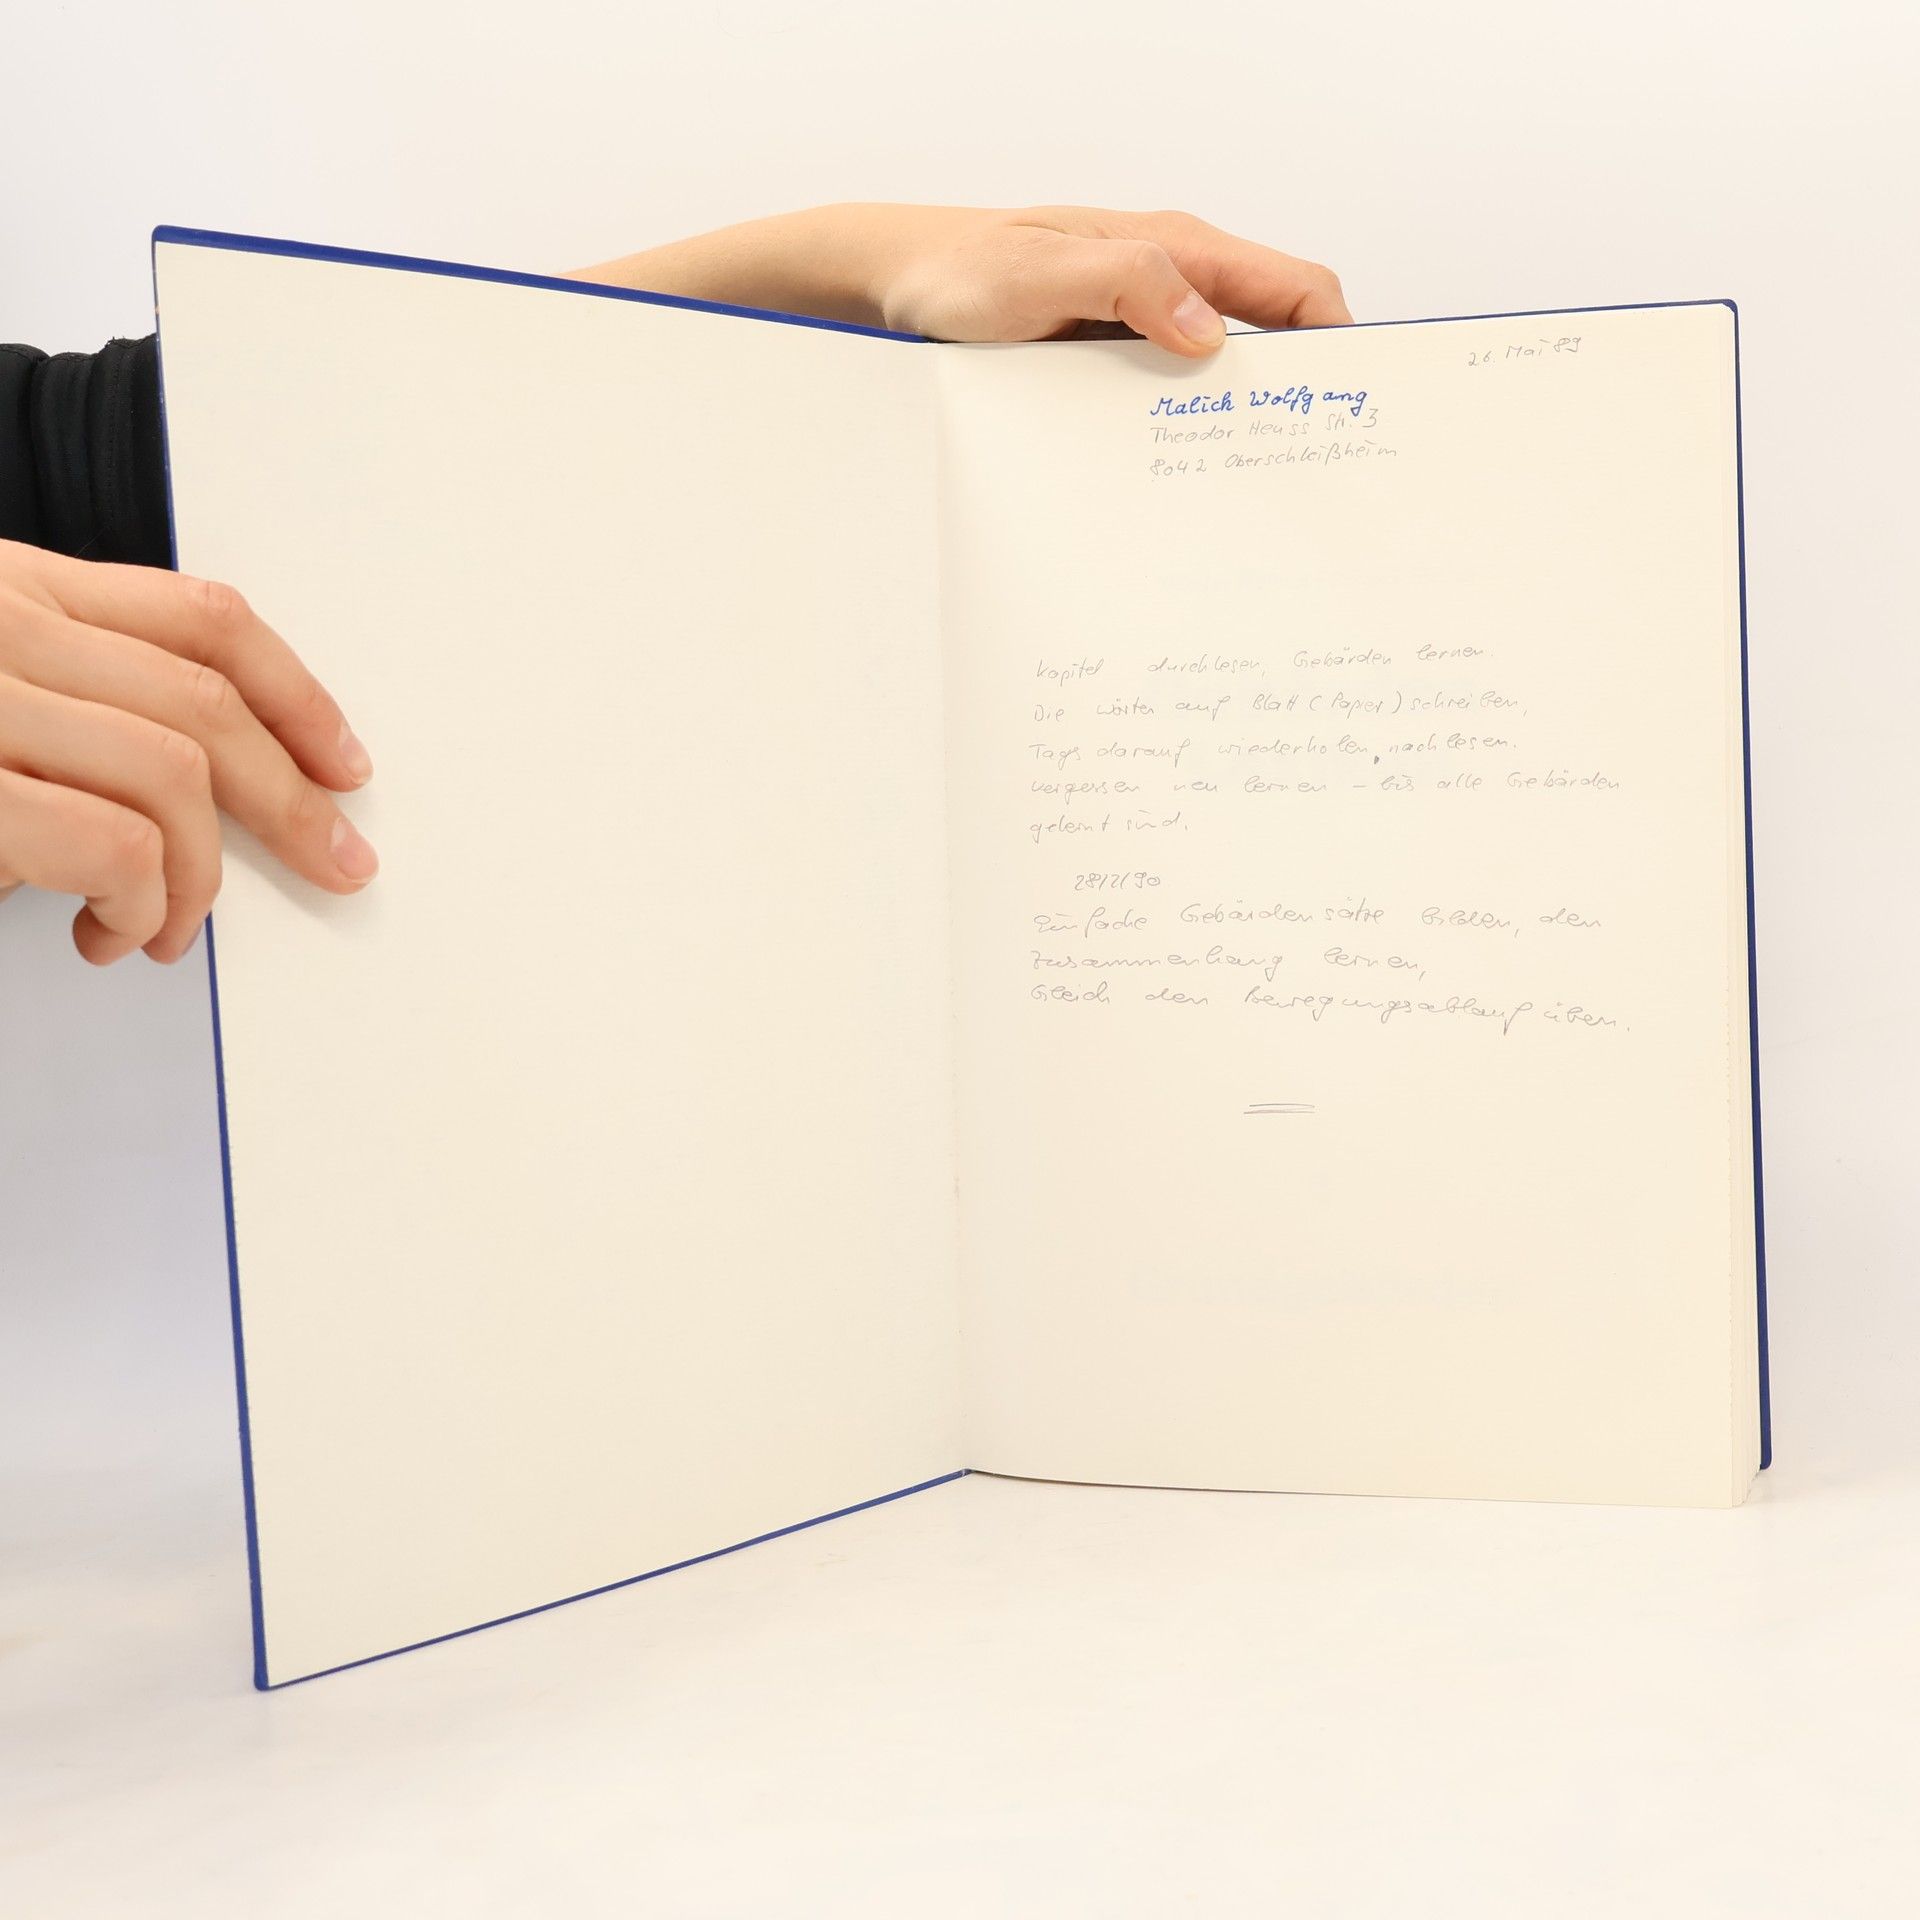 26. Mai 89
Malich Wolfgang
Theodor Heuss Str. 3
8042 Oberschleißheim
Kapitel durchlesen, Gebärden lernen.
Die Wörter auf Blatt (Papier) schreiben,
Tags darauf wiederholen, nachlesen.
vergessen neu lernen – bis alle Gebärden
gelernt sind.
28/2/90
Einfache Gebärdensätze bilden, den
Zusammenhang lernen,
Gleich den Bewegungsablauf üben.